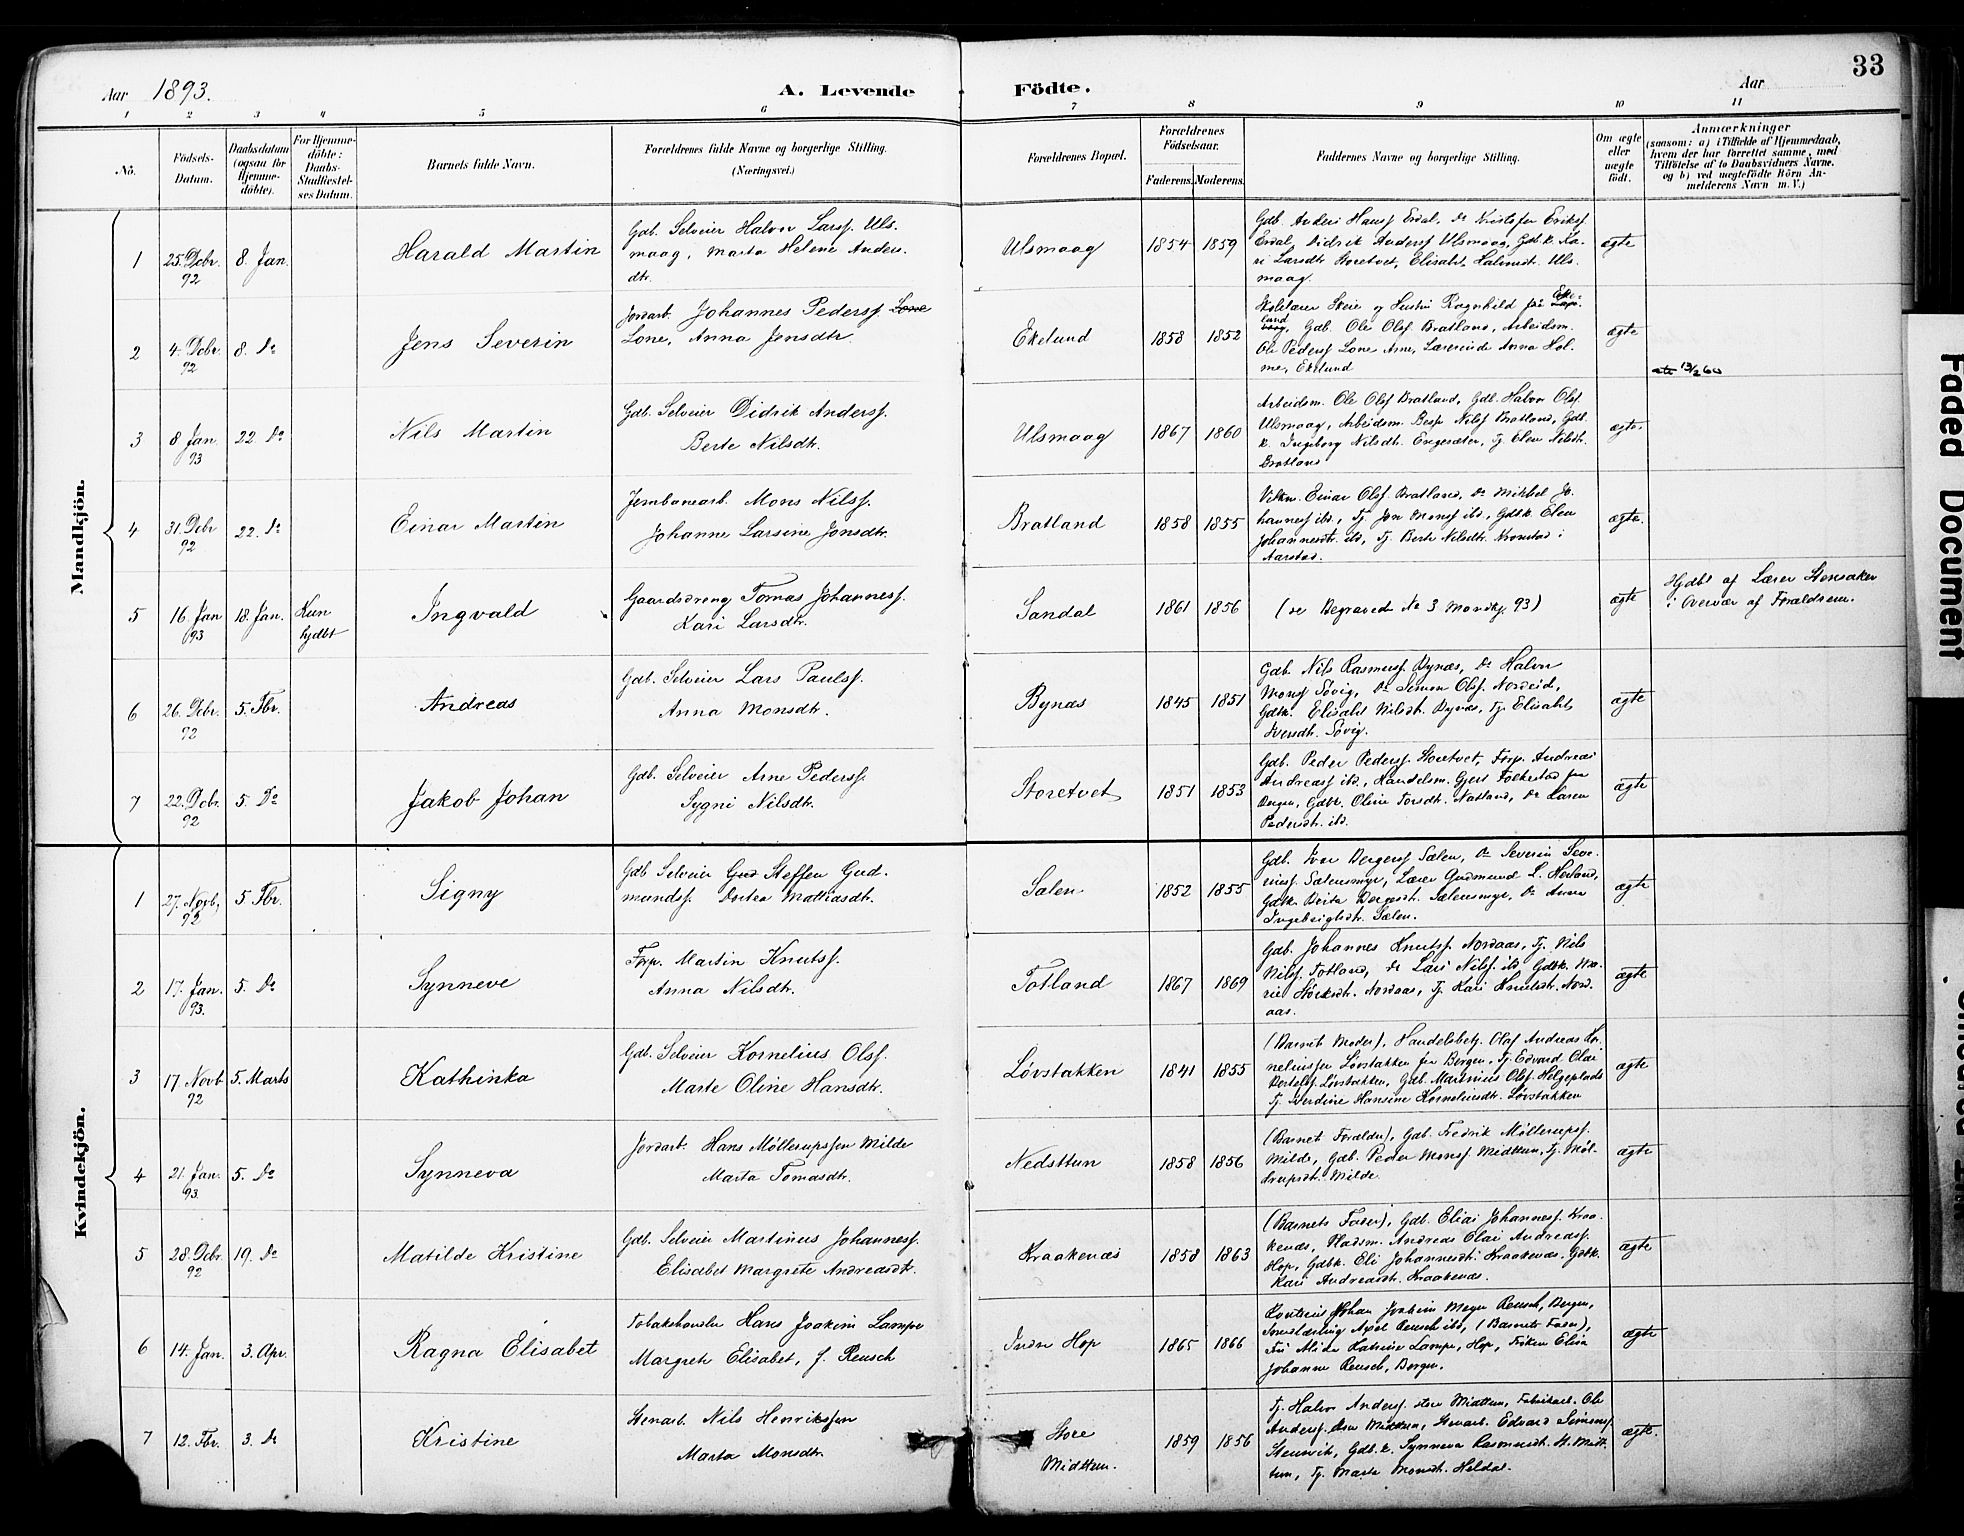 Aar 1893.
A. Levende Födte.
Aar
33
1 2 3 4 5 6 7 8 9 10 11
No.
Födsels-Datum.
Daabsdatum (ogsaa for Hjemmedöbte).
For Hjemmedöbte: Daabs-Stadfæstelses Datum.
Barnets fulde Navn.
Forældrenes fulde Navne og borgerlige Stilling. (Næringsvei.)
Forældrenes Bopæl.
Forældrenes Födselsaar.
Faderens. Moderens.
Faddernes Navne og borgerlige Stilling.
Om ægte eller uægte födt.
Anmærkninger
(saasom: a) i Tilfælde af Hjemmedaab,
hvem der har forrettet samme, med
Tilföielse af to Daabsvidners Navne.
og b) ved uægtefödte Börn Anmelderens Navn m. V.)
Mandkjön.
1 25. Dcbr. 92 8. Jan. Harald Martin
Gdb. Selveier Halvor Larss. Uls-
maag, Marta Helene Anders-
dtr.
Ulsmaag 1854 1859
Gdb. Anders Hanss Erdal, Do Kristofer Erikss
Erdal, Didrik Anderss Ulsmaag, Gdbk. Ka-
ri Larsdtr Storetvet, Elisabet Halvorsdt. Uls-
maag.
ægte
2 4. Dcbr. 92 8. Do Jens Severin
Jordarb. Johannes Pederss. Lone
Lone, Anna Jensdtr.
Ekelund 1858 1852
Skolelærer Skeie og Hustru Ragnhild fra Eke-
lund, Gdb. Ole Olss Bratland, Arbeidsm.
Ole Pederss Lone Arne, Lærerinde Anna Hol-
me, Ekelund
ægte
13/2 60
3 8 Jan 93 22 Do Nils Martin
Gdb. Selveier Didrik Anderss.
Berte Nilsdtr.
Ulsmaag 1867 1860
Arbeidsm. Ole Olss Bratland, Gdb. Halvor Olss
Ulsmaag, Arbeidsm. Nilss Bratland, Gdb.
k. Ingeborg Nilsdtr. Tj. Elen Nilsdtr.
Bratland
ægte.
4 31. Dcbr 92 22. Do Einar Martin
Jernbanearb. Mons Nilss.
Johanne Larsine Jonsdtr.
Bratland 1858 1855
Einar Olss. Bratland, Do Mikkel Jo-
hanness ibd., Tj. Jon Monss ibd., Gdbk. Elen
Johannesdtr. ibd, Tj. Berte Nilsdtr. Kronstad i
Aarstad.
ægte.
5 16. Jan 93 18. Jan. Kun hjdbt Ingvald
Gaardsdreng Tomas Johanness.
Kari Larsdtr.
Sandal 1861 1856
(se Begravede No 3 Mandkj. 93)
ægte
Hjdbt af Lærer Stensaker
i Overvær af Forældrene.
6 26. Dcbr. 92 5. Fbr. Andreas
Gdb. Selveier Lars Paulss.
Anna Monsdtr.
Bynæs 1845 1851
Gdb. Nils Rasmuss. Bynæs, Do Halvor
Monss Søvig, Do Simon Olss. Nordeide,
Gdbk. Elisabet Nilsdtr. Bynæs, Tj. Elisabet
Iversdtr. Søvig.
ægte
7 22. Dcbr. 92 5. Do Jakob Johan
Gdb. Selveier Arne Pederss.
Sygni Nilsdtr.
Storetvet 1851 1853
Gdb. Peder Pederss. Storetvet, Forp. Andreas
Andreass ibd., Handelsm. Gjert Folkestad fra
Bergen, Gdbk. Oline Torsdtr. Natland, Do Karen
Pedersdtr. ibd.
ægte
Kvindekjön.
1 27. Novb, 92 5 Fbr. Signy
Gdb Selveier Gud Steffen Gud-
mundss. Dortea Mattiasdtr.
Sælen 1852 1855
Gdb. Ivar Bergerss Sælen, Do Severin Seve-
rinss. Sælensmyr, Lærer Gudmund S. Hovland,
Gdbk. Brita Bergesdt. Sælensmyr, Do Anna
Ingebrigtsdt. Sælen.
ægte
2 17. Jan. 93. 5. Do Synneve
Forp. Martin Knutss.
Anna Nilsdtr.
Totland 1867 1869
Gdb. Johannes Knutss. Nordaas, Tj. Nils
Nilss. Totland, Do Lars Nilss. ibd Gdbk. Ma-
rie Nordaas, Tj. Kari Knutsdt. Nord-
aas.
ægte
3 17 Novb 92 5. Marts Kathinka
Gdb. Selveier Kornelius Olss.
Marte Oline Hansdtr.
Løvstakken 1841 1855
(Barnets Moder), Handelsbetj. Olaf Andreas Kor-
neliussen Løvstakken fra Bergen, Tj. Edvard Olai
Bertelss. Løvstakken, Gdb. Martinius Olss. Helgeplads
Tj. Berdine Hansine Korneliusdtr. Løvstakken
ægte
4 21. Jan. 93. 5. Do Synneva
Jordarb. Hans Møllerupssen Milde
Marta Tomasdtr.
Nedsttun 1858 1856
(Barnets Forældre), Gdb. Fredrik Møllerupss.
Milde, Gdb. Peder Monss Midttun, Tj. Møl-
lerupsdt. Milde.
ægte
5 28. Dcbr. 92 19. Do Matilde Kristine
Gdb. Selveier Martinus Johanness.
Elisabet Margrete Andreasdtr.
Kraakenæs 1858 1863
(Barnets Fader), Gdb. Elias Johanness. Kraa-
kenæs, Pladsm. Andreas Olai Andreass.
Hop, Gdbk. Eli Johannesdtr. Kraakenæs, Gdbk.
Kari Andreasdt. Kraakenæs.
ægte
6 14. Jan. 3. Apr. Ragna Elisabet
Tobakshandler Hans Joakim Lampe
Margrete Elisabet, f. Reusch
Indre Hop 1865 1866
Johan Joakim Meyer Reusch, Bergen,
Axel Reusch ibd, (Barnets Fader),
Fru Alida Katrine Lampe, Hop, Frøken Elisa
Johanne Reusch, Bergen.
ægte
7 12. Fbr. 3. Do Kristine
Stenarb. Nils Henrikssen
Marta Monsdtr.
Store
Midttun. 1859 1856
Tj. Halvor Anderss. store Midttun, Fabrikarb. Ole
Anderss. store Midttun, Stenarb. Edvard Simonss.
Stensvik, Gdb.k. Synneva Rasmusdt. St. Midt-
tun, Tj. Marta Monsdt. Heldal.
ægte.
Faded Document